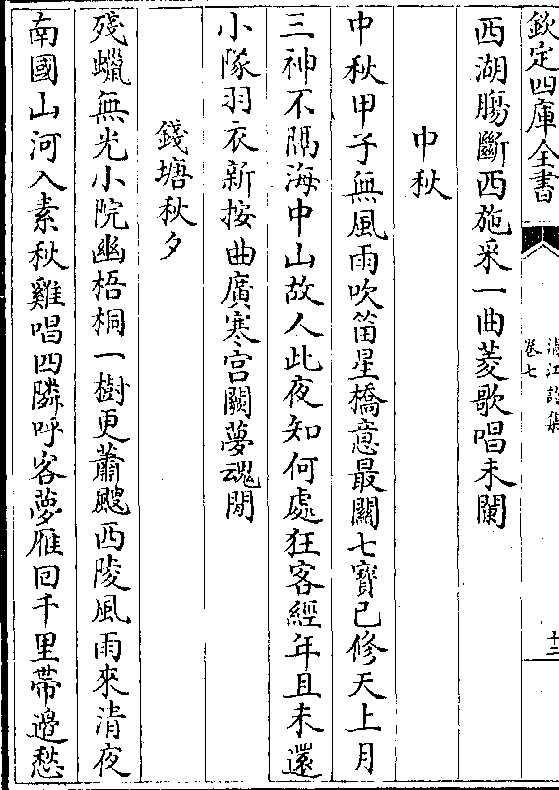 欽定四庫全書
清江詩集
卷七
十三
西湖腸斷西施采一曲菱歌唱未闌
中秋
中秋甲子無風雨吹笛星橋意最關七寳已修天上月
三神不隔海中山故人此夜知何處狂客經年且未還
小隊羽衣新按曲廣寒宫闕夢魂閒
錢塘秋夕
殘蠟無光小院幽梧桐一樹更蕭颼西陵風雨來清夜
南國山河入素秋雞唱四隣呼客夢雁回千里帶邊愁